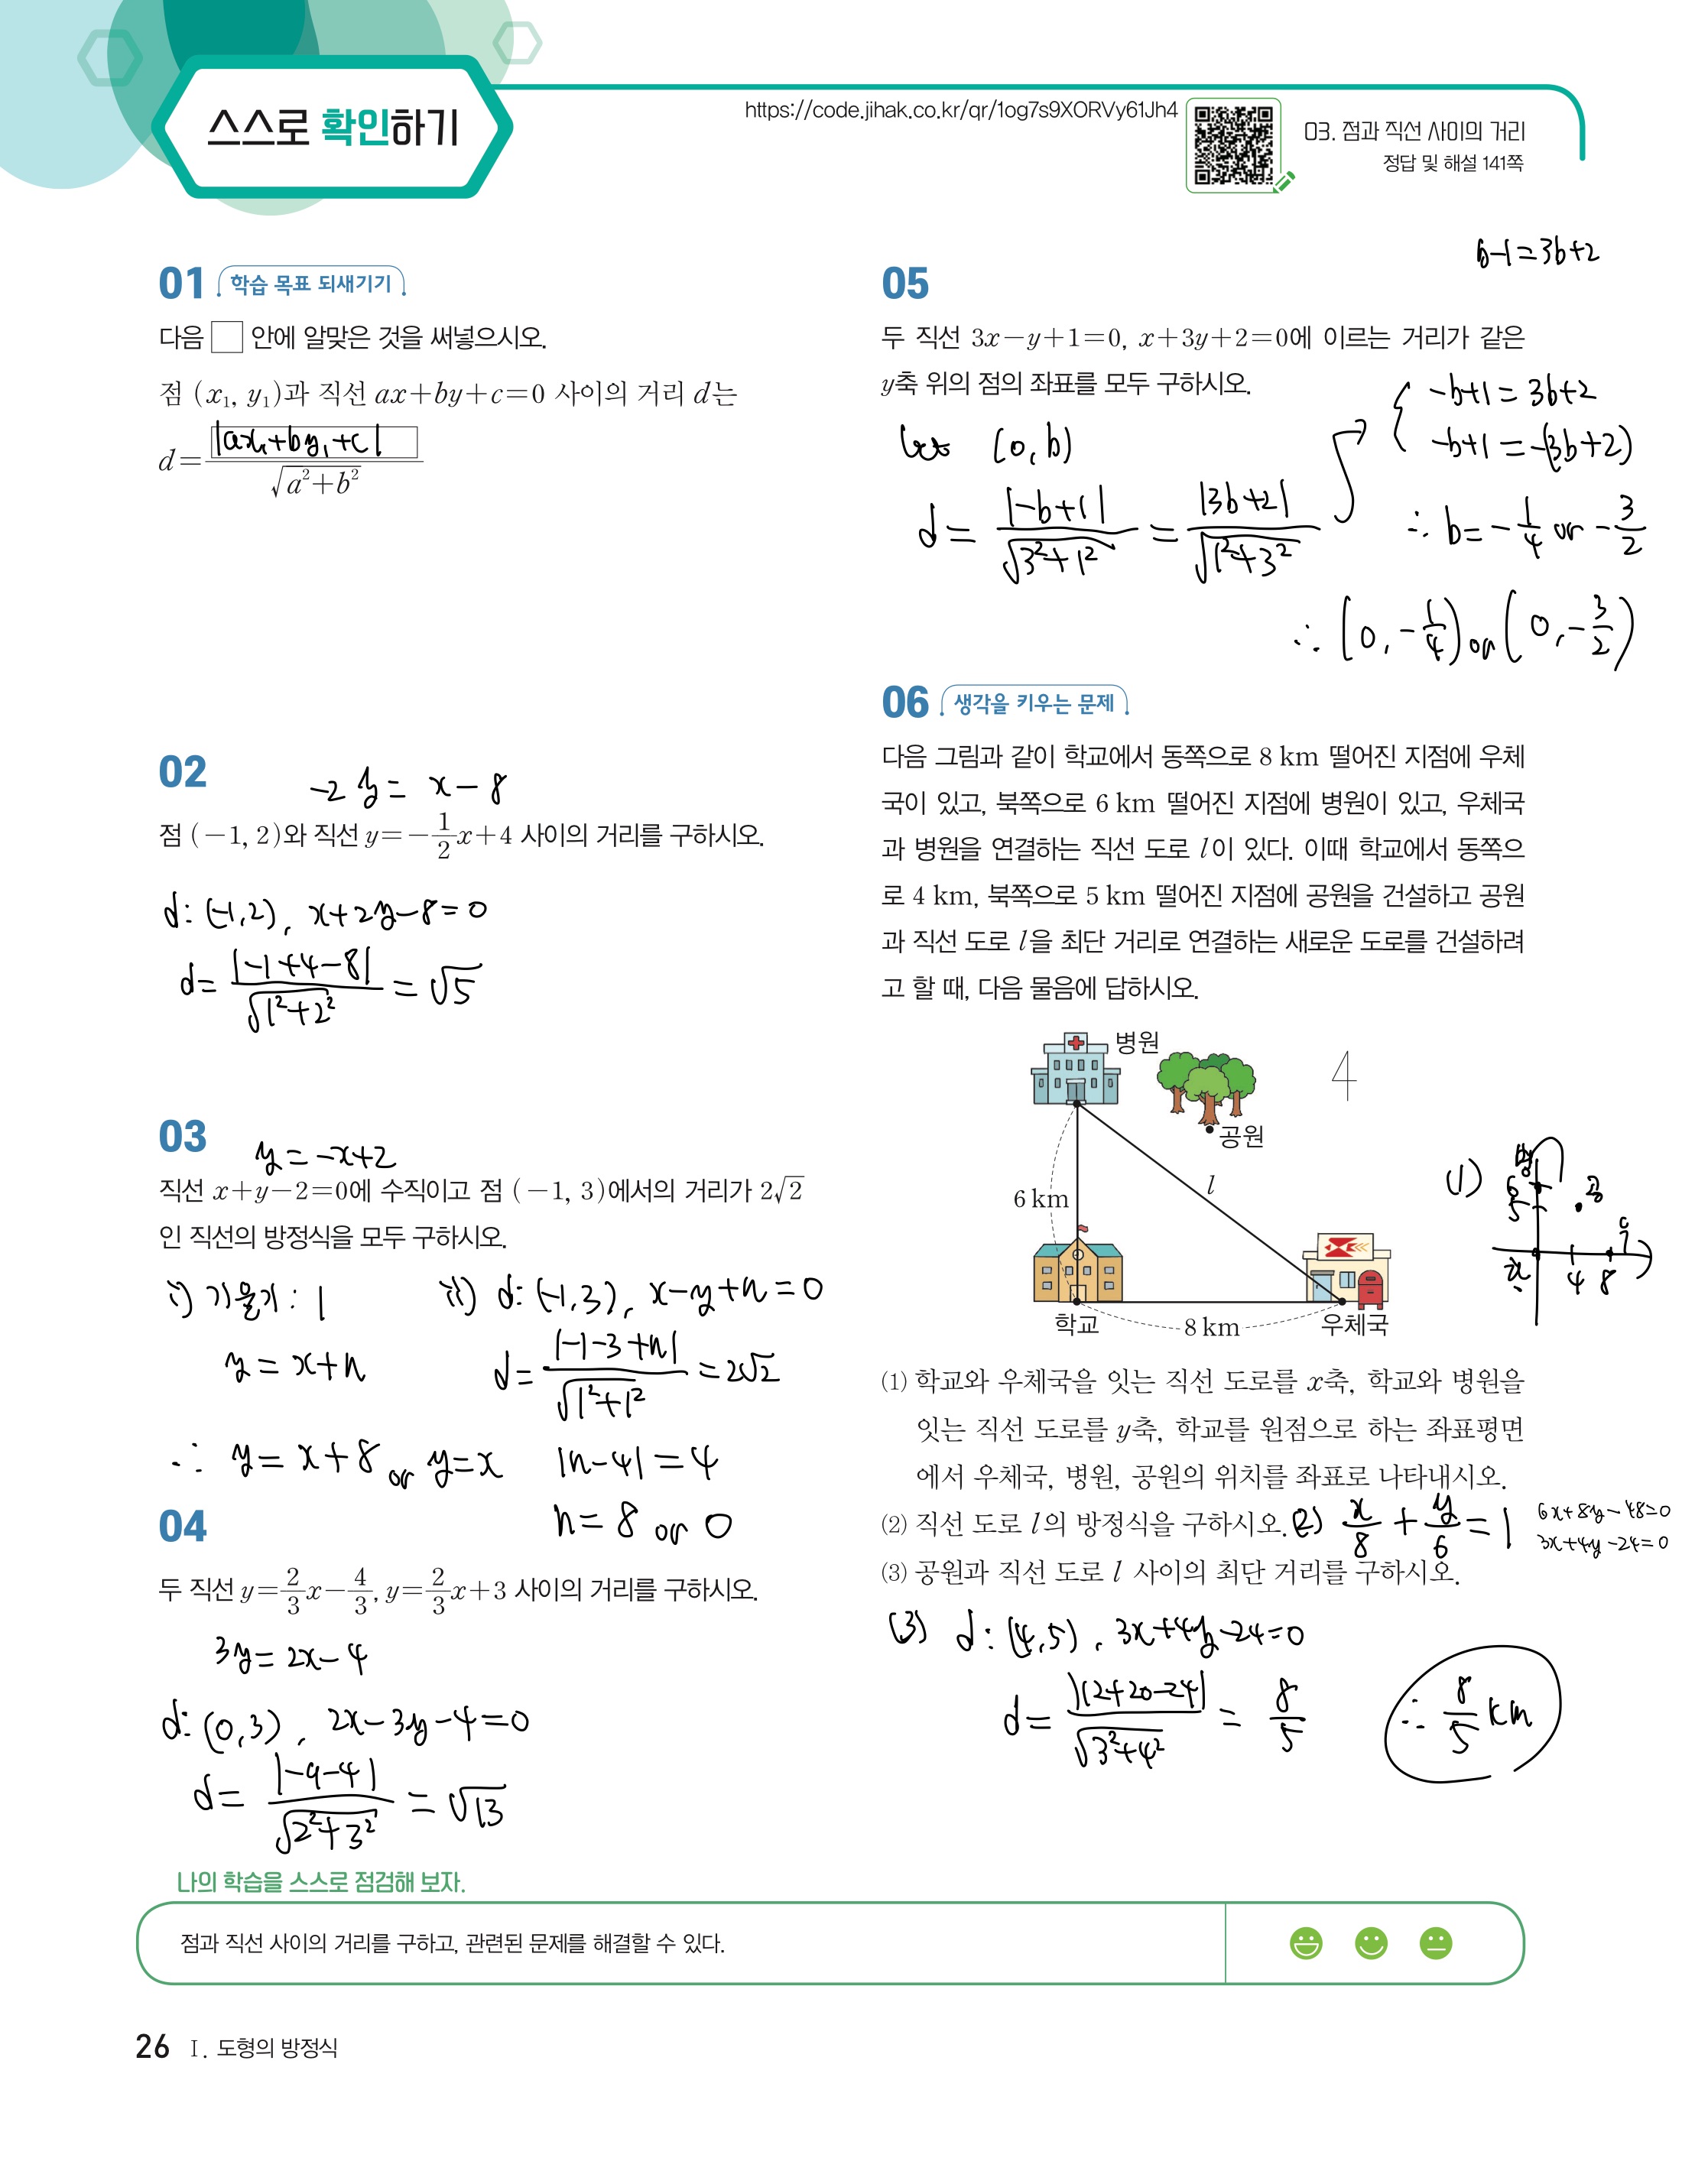 스스로 확인하기
https://code.jihak.co.kr/qr/1og7s9XORVy61Jh4
03. 점과 직선 사이의 거리
정답 및 해설 141쪽
01 학습 목표 되새기기
다음 □ 안에 알맞은 것을 써넣으시오.
점 (x₁, y₁)과 직선 ax+by+c=0 사이의 거리 d는
d=|ax₁+by₁+c|/√(a²+b²)
02
-2y = x-8
점 (-1, 2)와 직선 y=-1/2x+4 사이의 거리를 구하시오.
d: (-1,2), x+2y-8=0
d= |-1+4-8|/√(1²+2²) = √5
03
y=-x+2
직선 x+y-2=0에 수직이고 점 (-1, 3)에서의 거리가 2√2
인 직선의 방정식을 모두 구하시오.
i) 기울기 : 1
y = x+n
ii) d: (-1,3), x-y+n=0
d= |-1-3+n|/√(1²+1²) = 2√2
|n-4|=4
n= 8 or 0
∴ y=x+8 or y=x
04
두 직선 y=2/3x-4/3, y=2/3x+3 사이의 거리를 구하시오.
3y=2x-4
d: (0,3), 2x-3y-4=0
d= |-9-4|/√(2²+3²) = √13
05
b-1=3b+2
두 직선 3x-y+1=0, x+3y+2=0에 이르는 거리가 같은
y축 위의 점의 좌표를 모두 구하시오.
let (0,b)
d= |-b+1|/√(3²+1²) = |3b+2|/√(1²+3²)
-b+1=3b+2
-b+1=-(3b+2)
∴ b=-1/4 or -3/2
∴ (0,-1/4) or (0,-3/2)
06 생각을 키우는 문제
다음 그림과 같이 학교에서 동쪽으로 8 km 떨어진 지점에 우체
국이 있고, 북쪽으로 6 km 떨어진 지점에 병원이 있고, 우체국
과 병원을 연결하는 직선 도로 l이 있다. 이때 학교에서 동쪽으
로 4 km, 북쪽으로 5 km 떨어진 지점에 공원을 건설하고 공원
과 직선 도로 l을 최단 거리로 연결하는 새로운 도로를 건설하려
고 할 때, 다음 물음에 답하시오.
병원
4
공원
l
6 km
학교
8 km
우체국
(1)
6
5
공
4 8
⑴ 학교와 우체국을 잇는 직선 도로를 x축, 학교와 병원을
잇는 직선 도로를 y축, 학교를 원점으로 하는 좌표평면
에서 우체국, 병원, 공원의 위치를 좌표로 나타내시오.
⑵ 직선 도로 l의 방정식을 구하시오.
(2) x/8 + y/6 = 1
6x+8y-48=0
3x+4y-24=0
⑶ 공원과 직선 도로 l 사이의 최단 거리를 구하시오.
(3) d: (4,5), 3x+4y-24=0
d= |12+20-24|/√(3²+4²) = 8/5
∴ 8/5 km
나의 학습을 스스로 점검해 보자.
점과 직선 사이의 거리를 구하고, 관련된 문제를 해결할 수 있다.
26 Ⅰ. 도형의 방정식